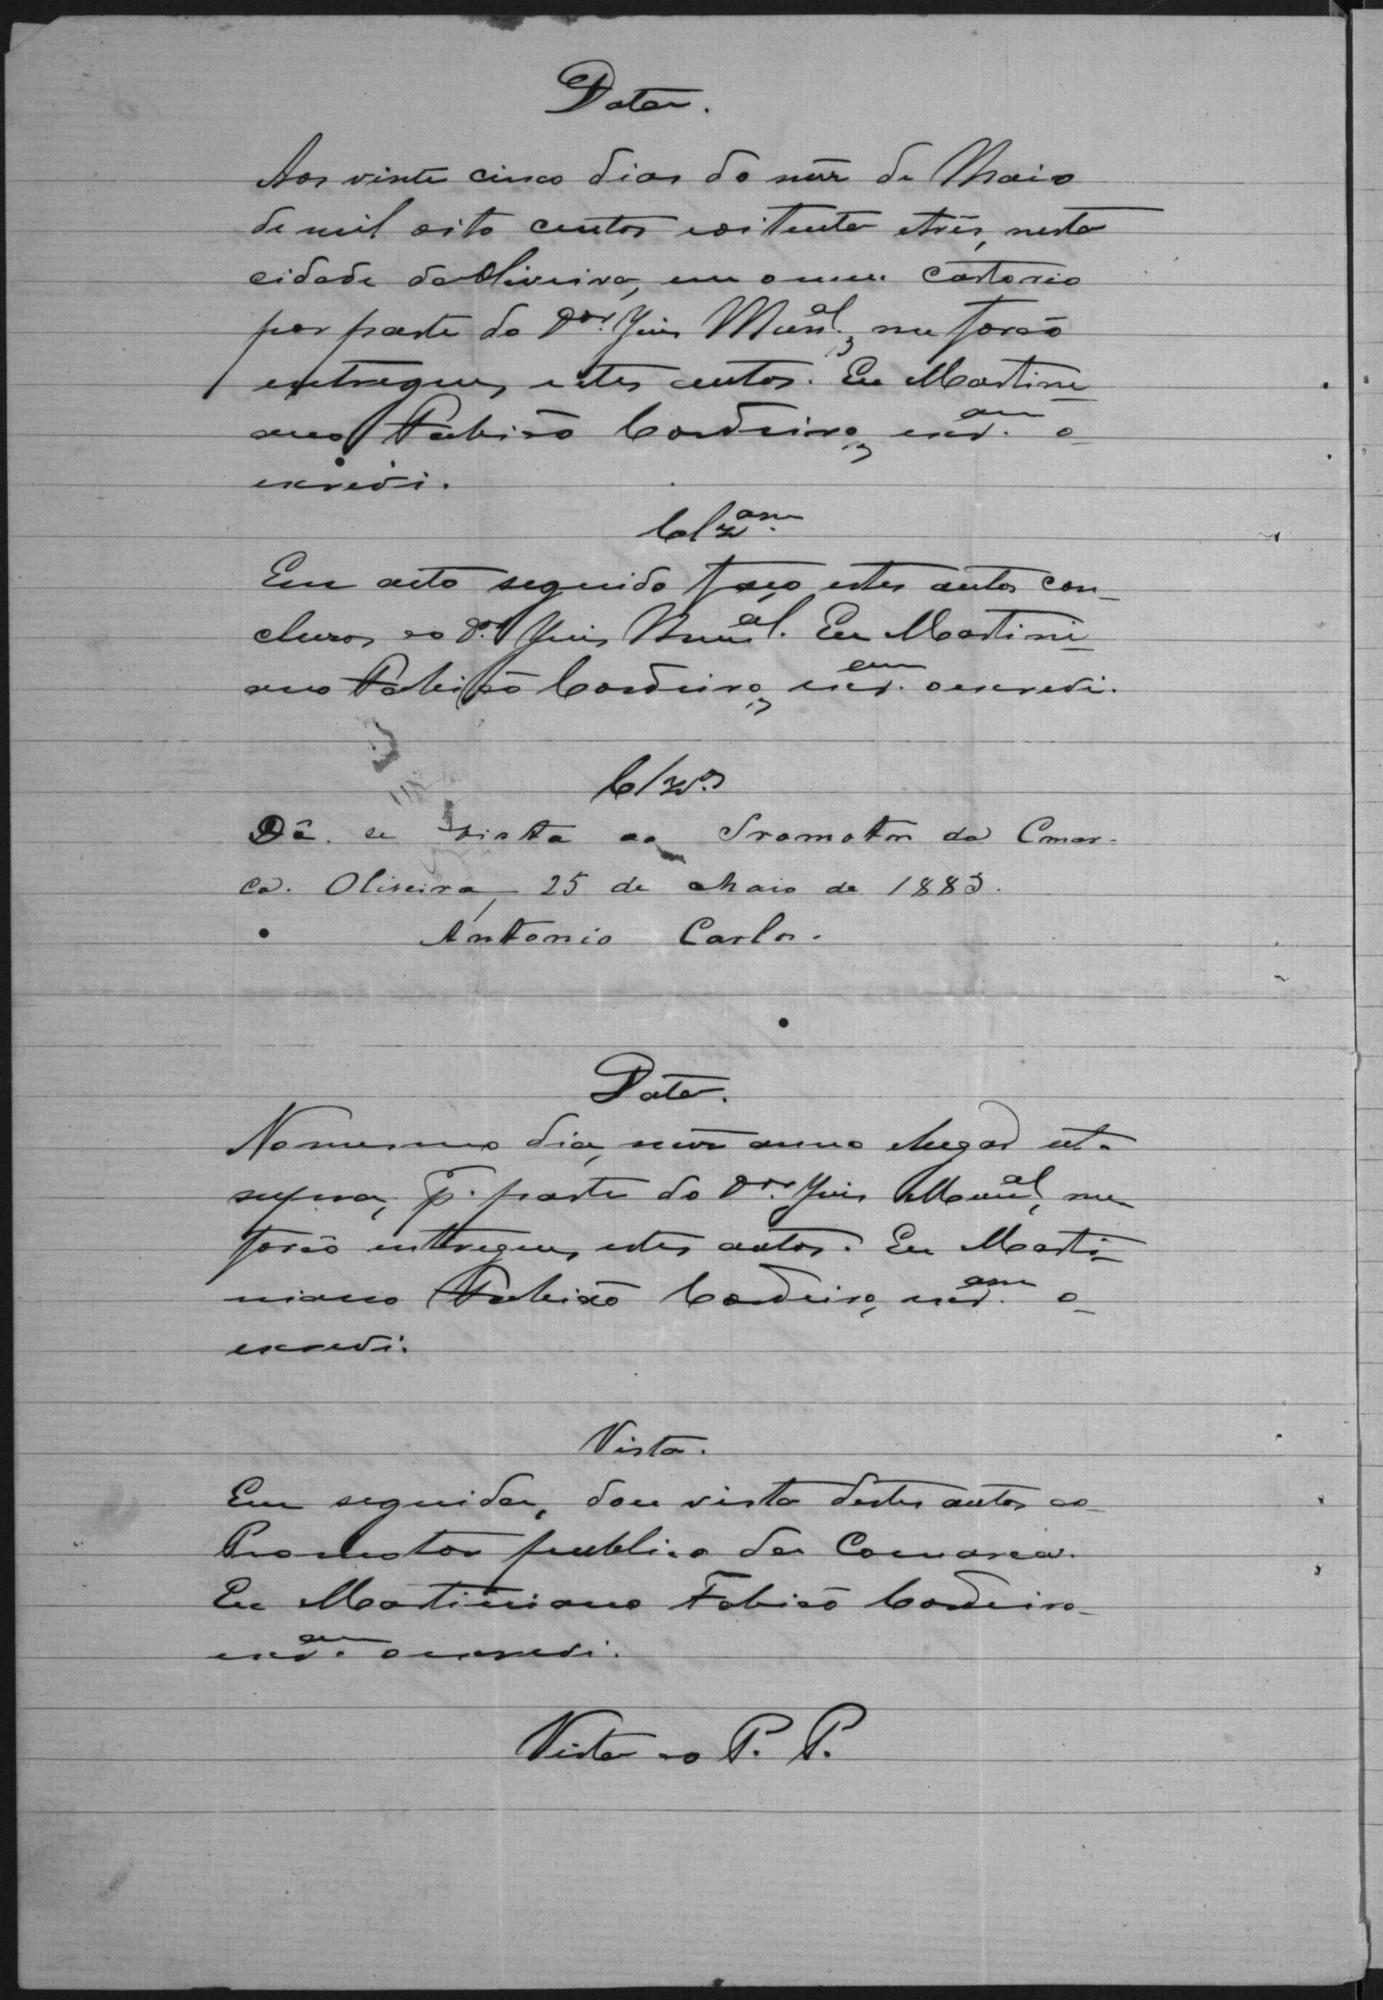 Data.
Aos vinte cinco dias do mez de Maio
de mil oito centos e oitenta e tres, nesta
cidade da Oliveira, em o meu Cartorio
por parte do Dor. Juis Munal., me forão
entregues estes autos. Eu Martini
ano Fabião Cordeiro, escram. o
escrevi.
Clzam.
Em acto seguido faço estes autos con-
clusos ao Dr. Juis Munal. Eu Martini
ano Fabião Cordeiro, escram. o escrevi.
Clzos
Dê-se vista ao Promotor da Comar-
ca. Oliveira, 25 de Maio de 1883.
Antonio Carlos.
Data.
No mesmo dia, mez anno e lugar ut-
supra, p. parte do Dor. Juis Munal, me
forão entregues estes autos. Eu Marti-
niano Fabião Cordeiro, escram. o
escrevi.
Vista.
Em seguida, dou vista destes autos ao
Promotor publico da Comarca.
Eu Martiniano Fabião Cordeiro
escram. o escrevi.
Vista ao P. P.